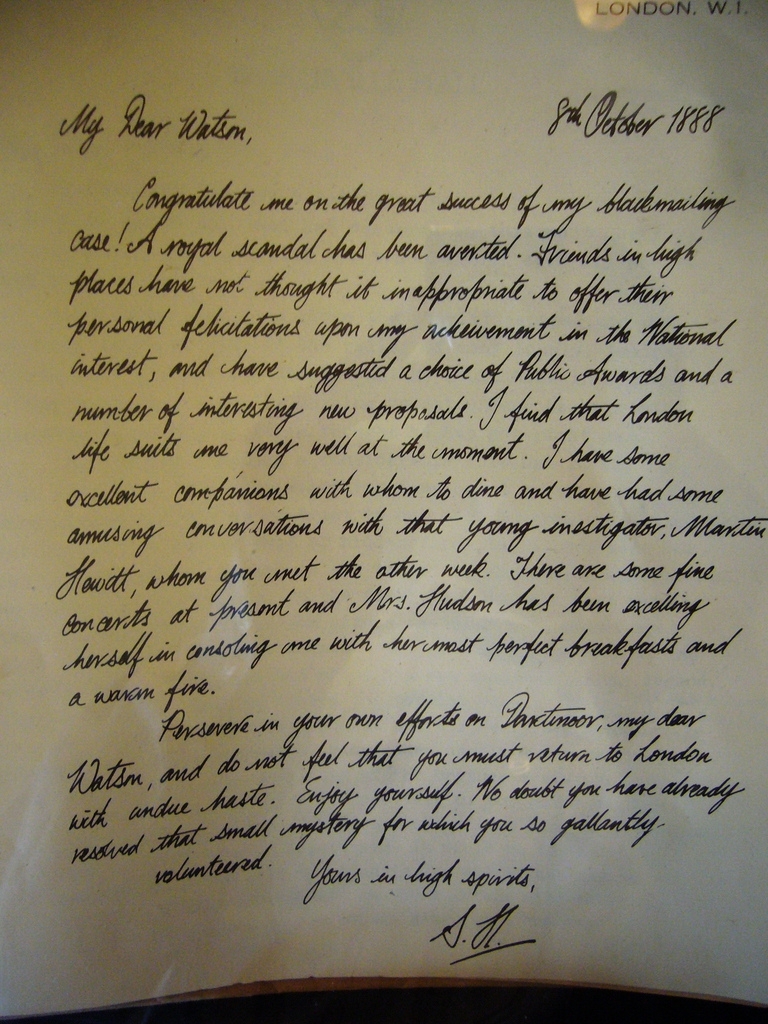 LONDON. W.1.
My Dear Watson, 8th October 1888
Congratulate me on the great success of my blackmailing
case! A royal scandal has been averted. Friends in high
places have not thought it inappropriate to offer their
personal felicitations upon my acheivement in the National
interest, and have suggested a choice of Public Awards and a
number of interesting new proposals. I find that London
life suits me very well at the moment. I have some
excellent companions with whom to dine and have had some
amusing conversations with that young inestigator, Martin
Hewitt, whom you met the other week. There are some fine
concerts at present and Mrs. Hudson has been excelling
herself in consoling me with her most perfect breakfasts and
a warm fire.
Persevere in your own efforts on Dartmoor, my dear
Watson, and do not feel that you must return to London
with undue haste. Enjoy yourself. No doubt you have already
resolved that small mystery for which you so gallantly
volunteered.
Yours in high spirits,
S.H.